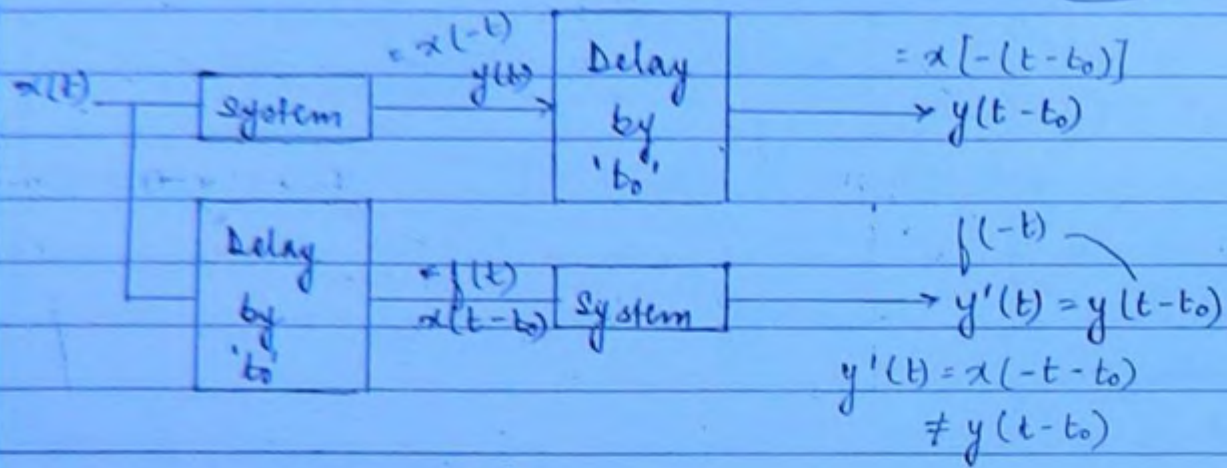 = x(-t)
x(t)
System
y(t)
Delay
by
't₀'
= x[-(t-t₀)]
y(t-t₀)
Delay
by
't₀'
= f(t)
x(t-t₀)
System
f(-t)
y'(t) = y(t-t₀)
y'(t) = x(-t-t₀)
≠ y(t-t₀)